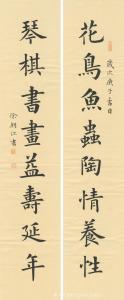 花鳥魚蟲陶情養性
歲次庚子書日
琴棋書畫益壽延年
徐朝江書